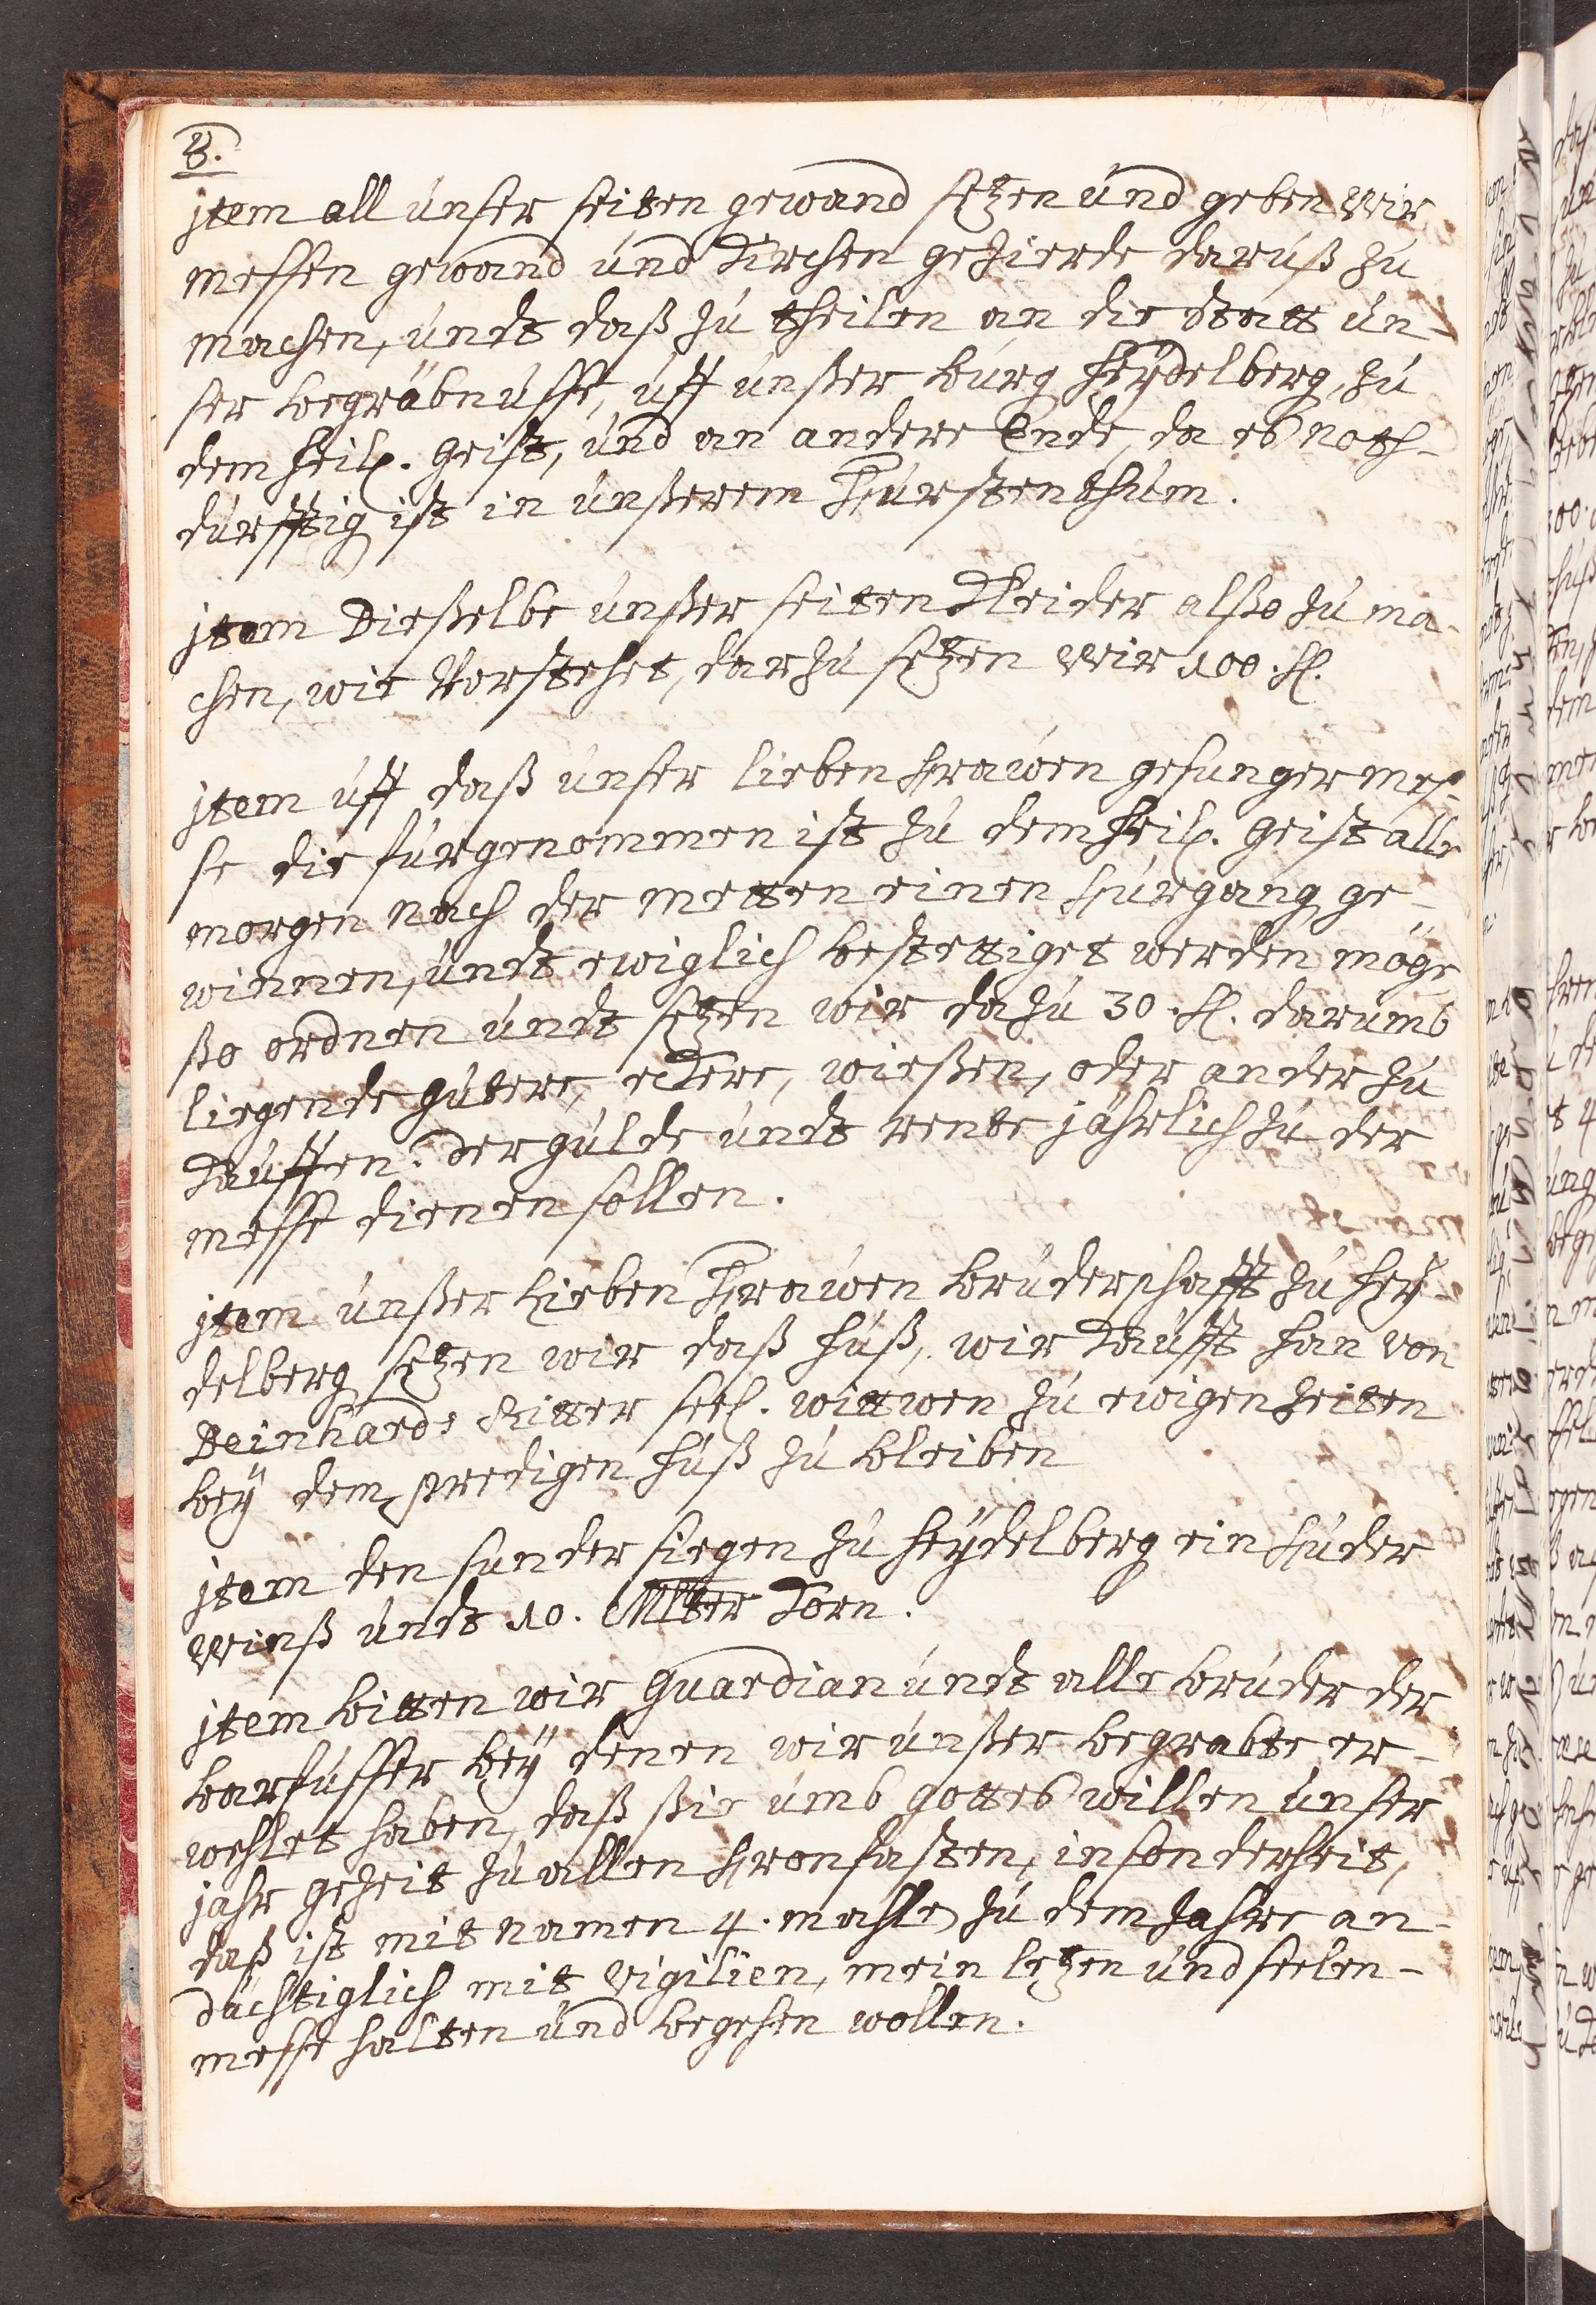 8.
jtem all unser seiten gewand setzen und geben Wir
messen gewand und Kirchen gezierde daruß zu
machen, undt daß zu theilen an die Statt un-
ser begräbnusse, uff unßer burg Heydelberg, zu
dem heil. Geist, und an andere Ende, da es noth-
durfftig ist in unßerem Fürstenthum.
jtem Dießelbe unßer seiten Kleider alßo zu ma-
chen, wie Vorstehet, darzu setzen Wir 100. fl.
jtem uff daß unser lieben Frawen gesunger mes-
se die furgenommen ist zu dem heil. Geist alle
morgen nach der metten einen Furgang ge-
winnen, undt ewiglich bestettiget werden möge
ßo ordnen undt setzen wir dazu 30. fl. darumb
liegende gutere, eckere, wießen, oder ander zu
Kauffen. der gulde undt rente jährlich zu der
messe dienen sollen.
jtem unßer Lieben Frawen bruderschafft zu Hey-
delberg setzen wir daß huß, wir Kaufft han von
Beinhards Ritter seel. wittwen zu ewigen Zeiten
bey dem predigen huß zu bleiben
jtem den sunder siegen zu Heydelberg ein Fuder
Weinß undt 10. Mlter Korn.
jtem bitten wir Guardian undt alle bruder der
barfusser bey denen wir unßer begrabte er-
wehlet haben, daß sie umb gottes willen unser
jahr gezeit zu allen Fronfasten, insonderheit,
daß ist mit namen 4. mahle zu dem Jahre an-
dächtiglich mit Vigilien, mein letzen und seelen-
messe halten und begehen wollen.